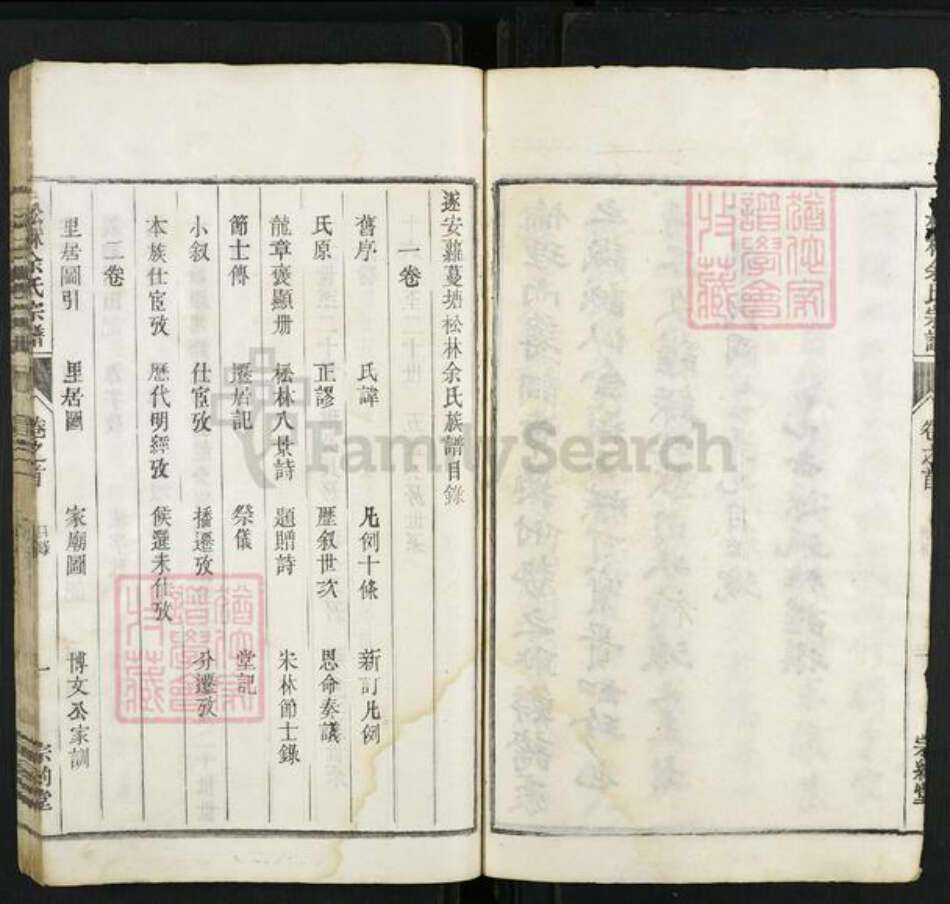 遂安蘿蔓塘松林余氏族譜目錄
一卷
舊序 氏諱 凡例十條 新訂凡例
氏原 正謬 歷叙世次 恩命奏議
龍章褒顯册 松林八景詩 題贈詩 宋林節士錄
節士傳 遷居記 祭儀 堂記
小叙 仕宦攷 播遷攷 分遷攷
本族仕宦攷 歷代明經攷 候選未仕攷
二卷
里居圖引 里居圖 家廟圖 博文公家訓
松林余氏宗譜 卷之首 目錄 一
FamilySearch
譜學會 收藏